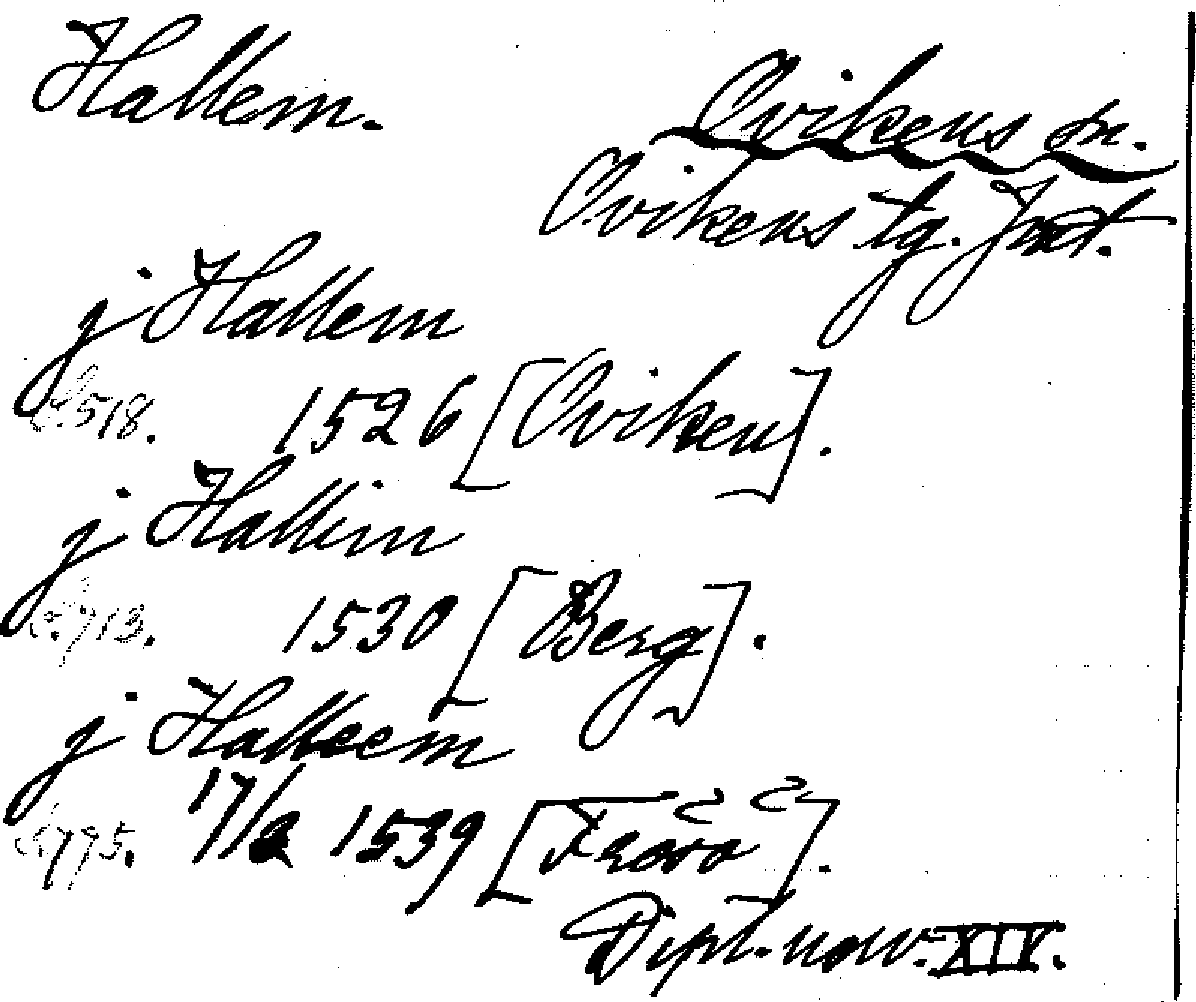 Hallem. Ovikens sn.
Ovikens tg. Jmt.
j Hallem
s. 518. 1526 [Oviken].
j Hallim
s. 713. 1530 [Berg].
j Halleem
s. 795. 17/2 1539 [Frösö].
Dipl. norv. XIV.